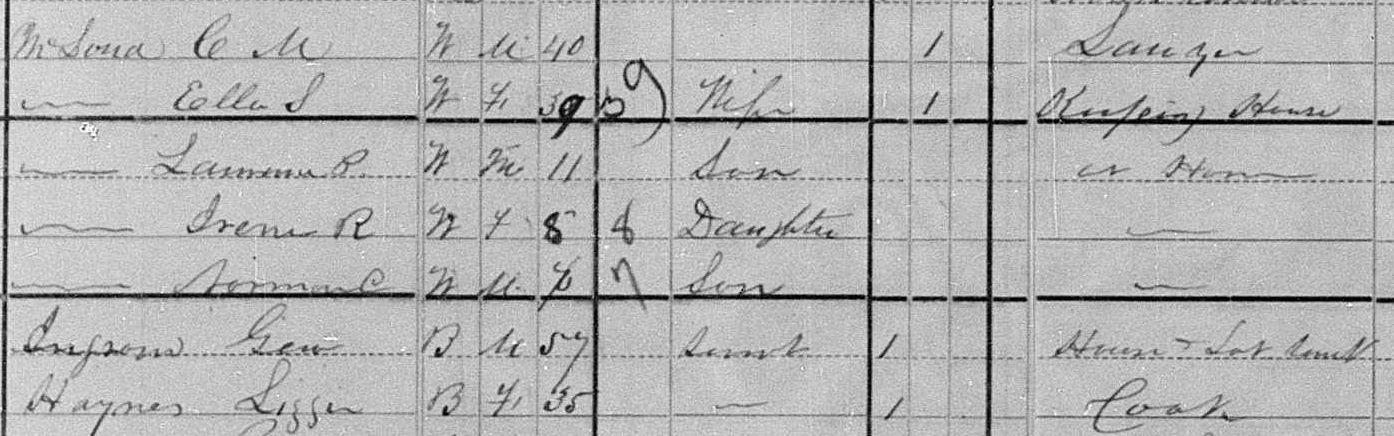 C M W M 40 1 Lawyer
— Ella S W F 39 9 Wife 1 Keeping House
— Lawrence R. W M 11 Son at Home
— Irene R W F 8 8 Daughter —
— Norman C W M 7 Son —
Ingram Geo B M 57 servt 1 House & Lot servt
Haynes Lizzie B F 35 — 1 Cook